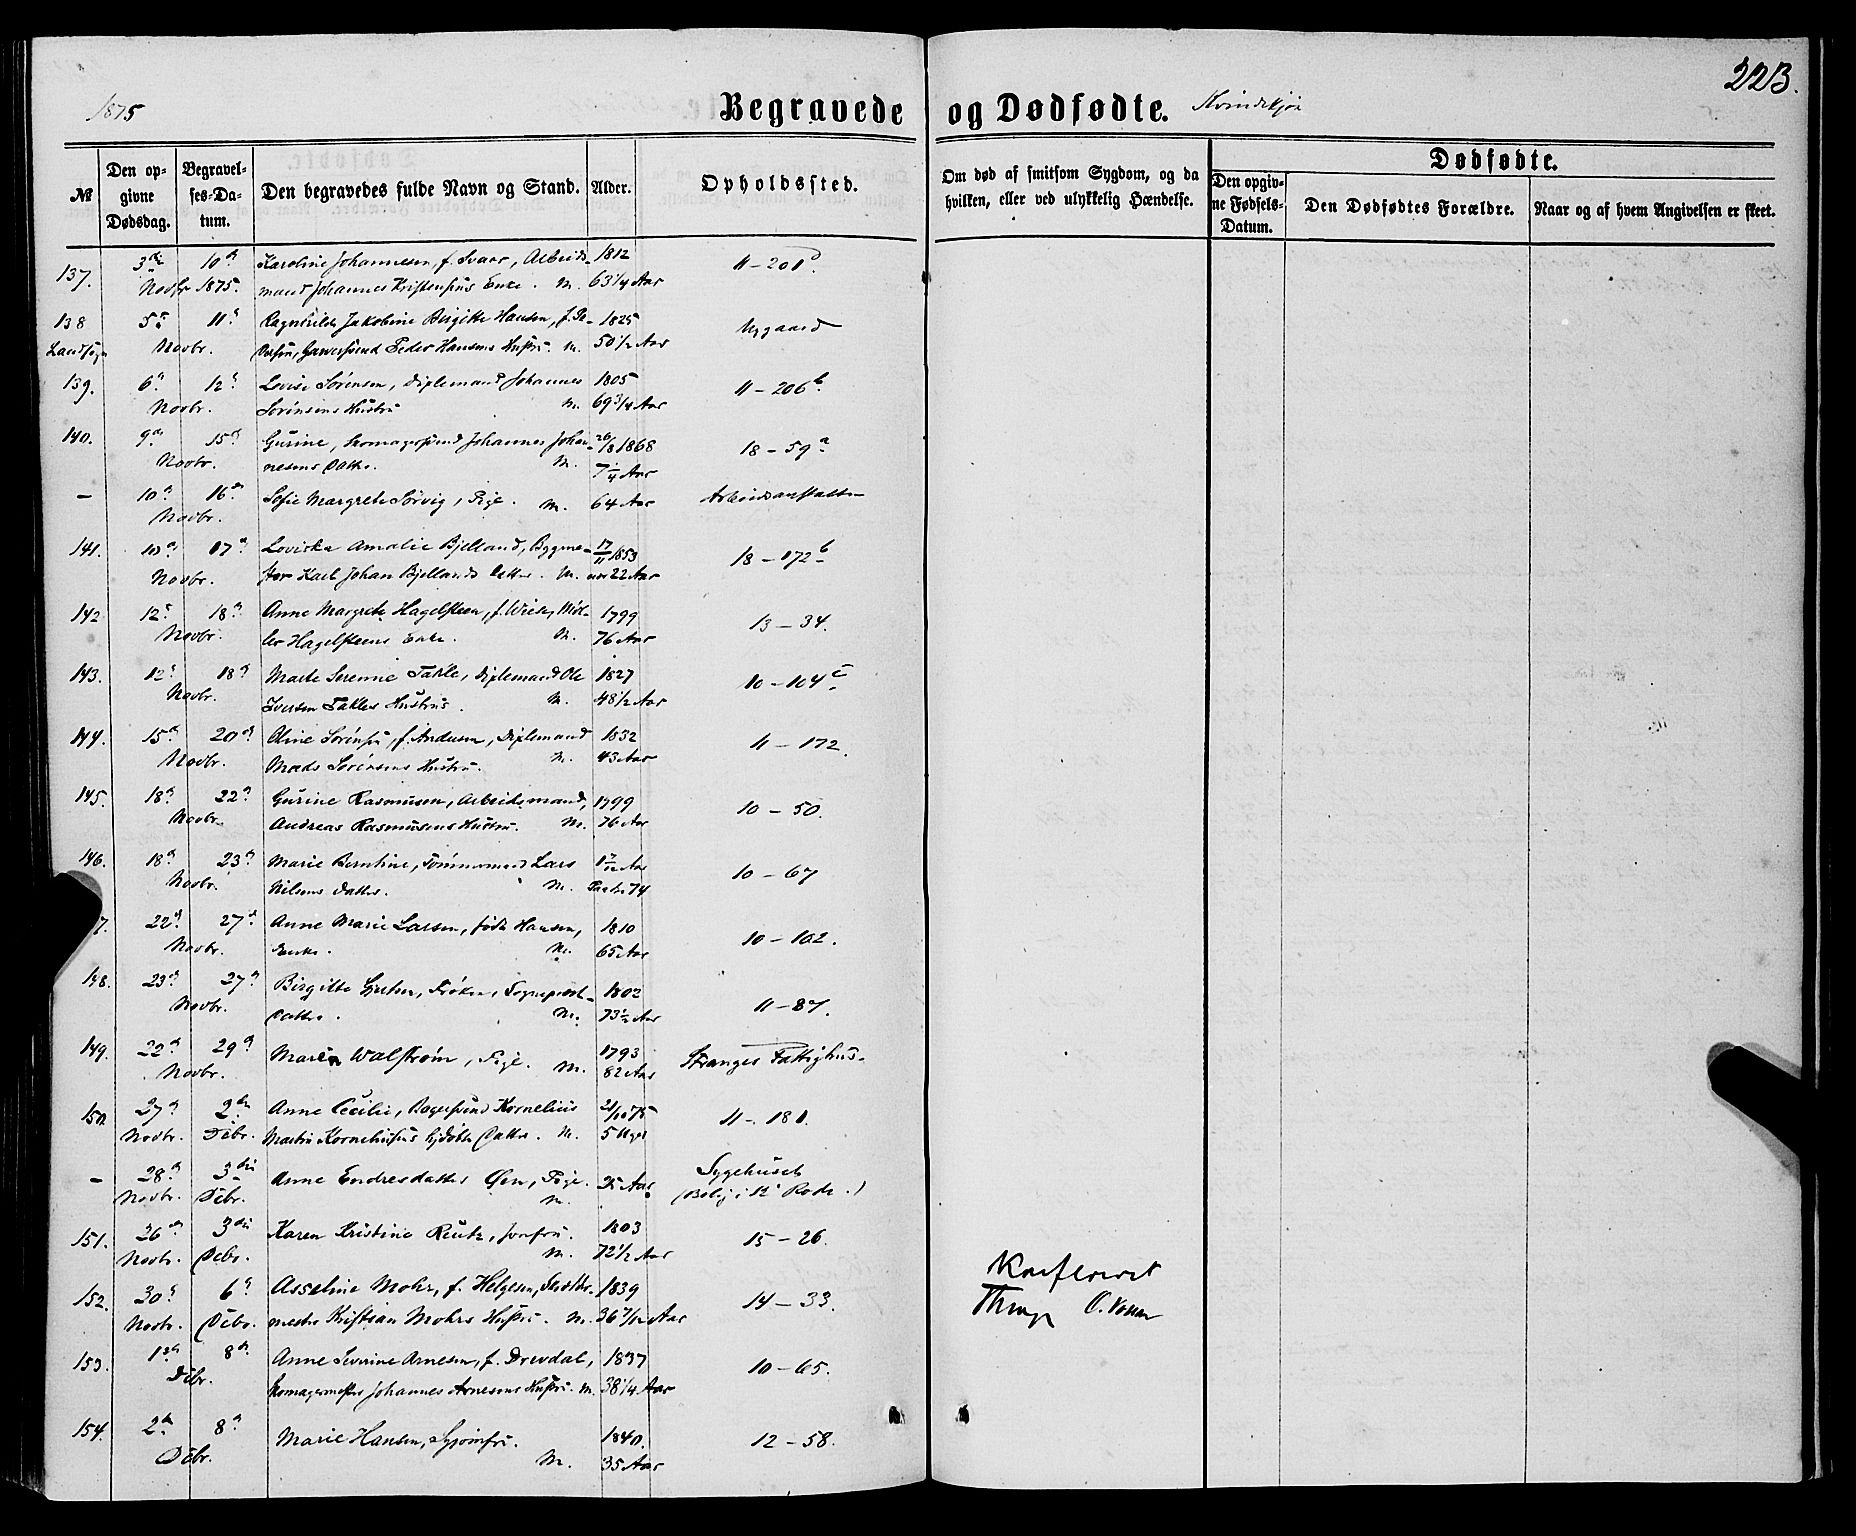 1875
Begravede og Dødfødte. Kvindekjøn
223.
№
Den opgivne Dødsdag.
Begravelses-Datum.
Den begravedes fulde Navn og Stand.
Alder.
Opholdssted.
Om død af smitsom Sygdom, og da hvilken, eller ved ulykkelig Hændelse.
Dødfødte.
Den opgivne Fødsels-Datum.
Den Dødfødtes Forældre.
Naar og af hvem Angivelsen er skeet.
137. 3die 10de Karoline Johannesen, f. Svaar, Arbeids- 1812 11-201d.
Novbr 1875. mand Johannes Kristensens Enke. M. 63 1/4 Aar
138 5te 11te Ragnhilde Jakobine Birgitte Hansen, f. Pe- 1825 Nygaard
Landsogn Novbr. dersen, Garversvend Peder Hansens Hustru. M. 50 1/2 Aar
139. 6te 12te Lovise Sørensen, Diplemand Johannes 1805 11-206b.
Novbr. Sørensens Hustru M. 69 3/4 Aar
140. 9de 15de Gurine, Skomagersvend Johannes Johan- 26/8 1868 18-59a
Novbr. nesens Datter. M. 7 1/4 Aar
- 10de 16de Sofie Margrete Sørvig, Pige. M. 64 Aar Arbeidsanstalten
Novbr.
141. 10de 17de Loviska Amalie Bjelland, Bygme- 17/11 1853 18-172b
Novbr. ster Karl Johan Bjellands Datter. M. 22 Aar
142 12te 18de Anne Margrete Hagelsteen, f. Wiek, Møl- 1799 13-34.
Novbr. ler Hagelsteens Enke. M. 76 Aar
143. 12te 18de Marte Serenne Takle, Diplemand Ole 1827 10-104c
Novbr. Iversen Takles Hustru. M. 48 1/2 Aar
144. 15de 20de Oline Sørensen, f. Andersen, Diplemand 1832 11-172.
Novbr. Mads Sørensens Hustru. M. 43 Aar
145. 18de 22de Gurine Rasmusen, Arbeidsmand, 1799 10-50.
Novbr. Andreas Rasmusens Hustru. M. 76 Aar
146. 18de 23de Marie Berntine, Tømmermand Lars 1 7/12 Aar 10-67
Novbr. Nilsens Datter. M.
7. 22de 27de Anne Marie Larsen, født Hansen, 1810 10-102.
Novbr. Enke. M. 65 Aar
148. 23de 27de Birgitte Frøken, Sogneprest- 1802 11-87.
Novbr. Datter. M. 73 1/2 Aar
149. 22de 29de Maren Walstrøm, Pige. M. 1793 Stranges Fattighus.
Novbr. 82 Aar
150. 27de 2den Anne Cecilie, Bagersvend Kornelius 21/10 75 11-181.
Novbr. Debr. Martin Korneliusens Datter. M. 5 Uger
- 28de 3die Anne Endresdatter Øen, Pige. 25 Aar Sygehuset
Novbr. Debr. M. (Bolig i 12te Rode.)
151. 26de 3die Karen Kristine Reutz, Jomfru. 1803 15-26.
Novbr. Debr. M. 72 1/2 Aar
152. 30te 6te Asseline Mohr, f. Helgesen, 1839 14-33.
Novbr. Debr. mester Kristian Mohrs Hustru. M. 36 7/12 Aar
Konfereret
153. 1ste 8de Anne Severine Arnesen, f. Drevdal, 1837 10-65.
Debr. Skomagermester Johannes Arnesens Hustru. M. 38 1/4 Aar
154. 2den 8de Marie Hansen, Syjomfru. 1840. 12-58.
Debr. M. 35 Aar